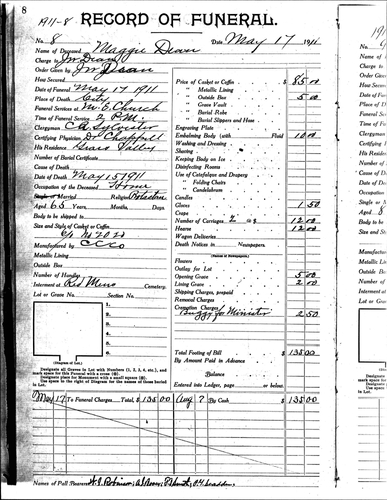 8
1911-8 RECORD OF FUNERAL.
No. 8 Date May 17 1911
Name of Deceased Maggie Dean
Charge to Jno Dean
Order Given by Jno Dean
How Secured
Date of Funeral May 17 1911
Place of Death City
Funeral Services at M.E. Church
Time of Funeral Service 2 P.M.
Clergyman C A Sylvester
Certifying Physician Dr Chappell
His Residence Grass Valley
Cause of Death
Date of Death May 15 1911
Occupation of the Deceased Home
Single or Married Religion
Aged 65 Years, Months, Days.
Body to be shipped to
Size and Style of Casket or Coffin
Manufactured by
Metallic Lining
Outside Box
Number of Handles
Interment at Red Mens Cemetery.
Lot or Grave No. Section No.
1.
2.
3.
4.
5.
6.
(Diagram of Lot.)
Designate all Graves in Lot with Numbers (1, 2, 3, 4, etc.), and mark space for this Funeral with a cross (X).
Designate place for Monument with a small square (□).
Use space to the right of Diagram for the names of those buried in Lot.
Price of Casket or Coffin $ 85 00
" Metallic Lining
" Outside Box 5 00
" Grave Vault
" Burial Robe
" Burial Slippers and Hose
Engraving Plate
Embalming Body (with Fluid 10 00
Washing and Dressing
Shaving
Keeping Body on Ice
Disinfecting Rooms
Use of Catafalque and Drapery
" Folding Chairs
" Candelabrum
Candles
Gloves 1 50
Cape
Number of Carriages 2 @ $ 12 00
Hearse 12 00
Wagon Deliveries
Death Notices in Newspapers.
(Names of Newspapers.)
Flowers
Outlay for Lot
Opening Grave 5 00
Lining Grave 2 00
Shipping Charges, prepaid
Removal Charges
Cremation Charges
Buggy for Minister 2 50
Total Footing of Bill $ 135 00
By Amount Paid in Advance
Balance
Entered into Ledger, page or below.
May 17 To Funeral Charges, Total $ 135 00 Aug 7 By Cash $ 135 00
Names of Pall Bearers